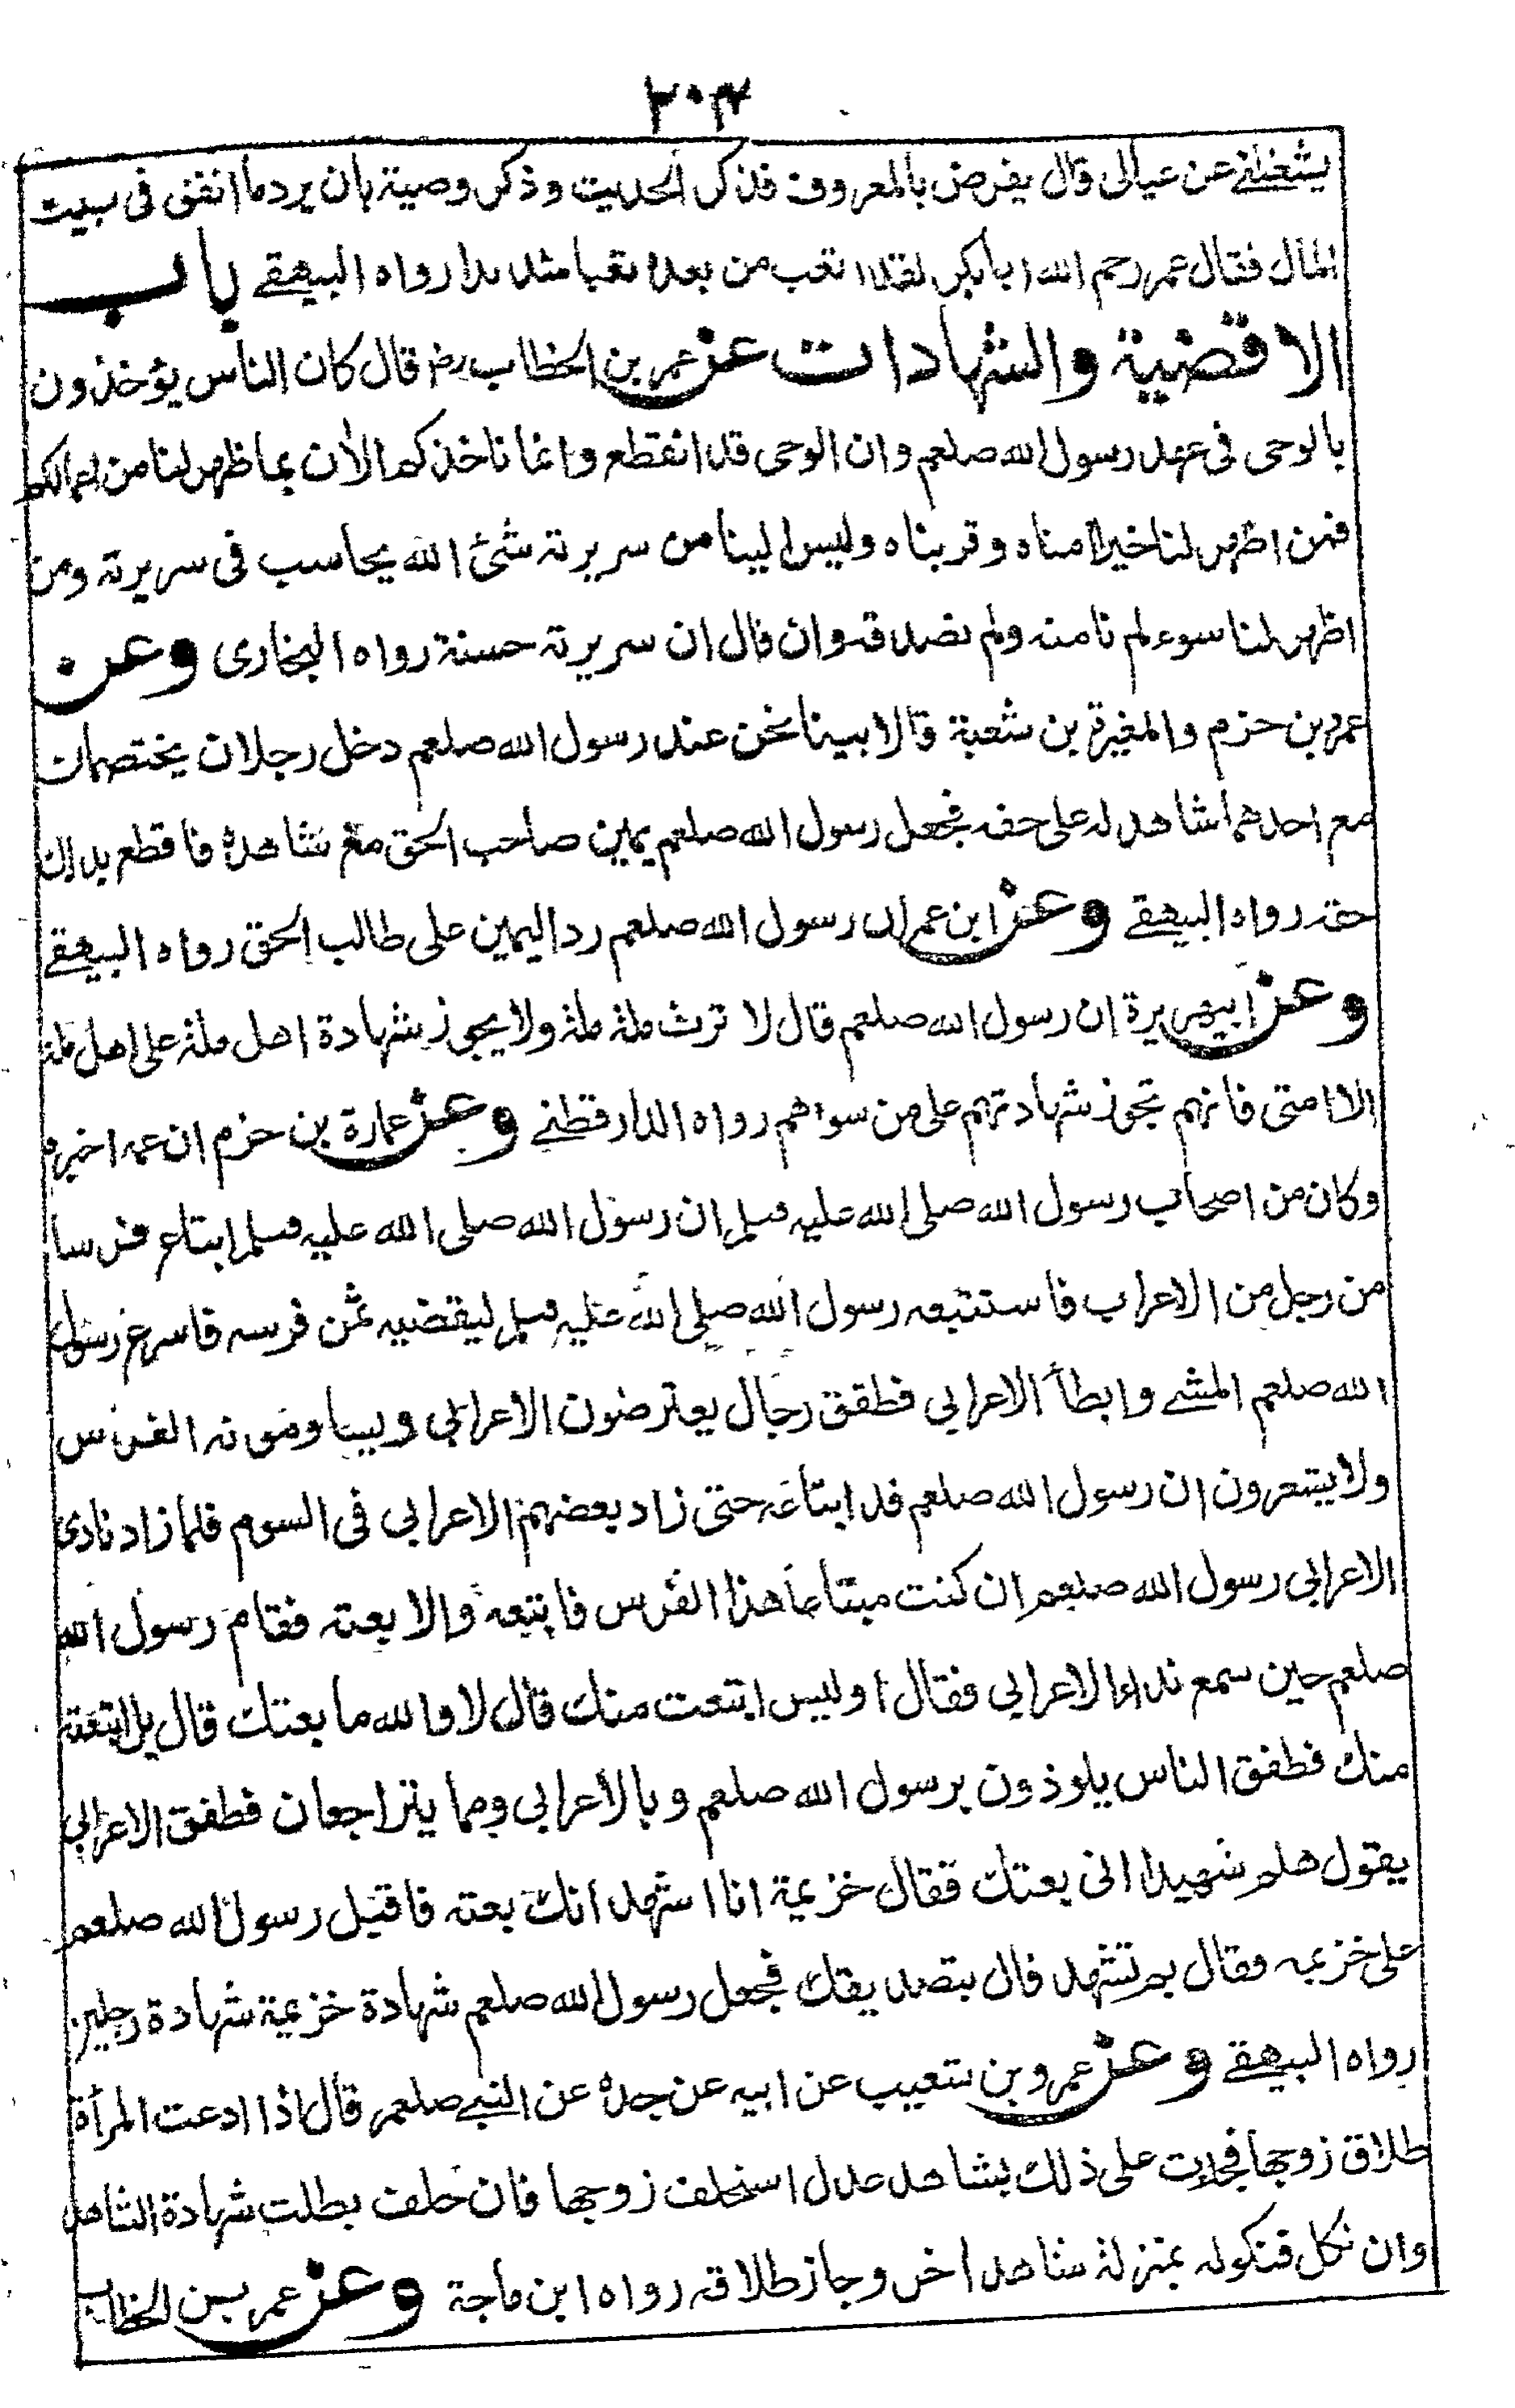 ٢٠٤
يشغلنے عن عيالى قال يفرض بالمعروف فذكر الحديث وذكر وصية بان يرد ما انفق فى بيت
المال فقال عمر رحم الله ابا بكر لقد اتعب من بعده تعبا شديدا رواه البيهقے باب
الاقضية والشهادات عن عمر بن الخطاب رض قال كان الناس يؤخذون
بالوحى فى عهد رسول الله صلعم وان الوحى قد انقطع وانما ناخذكم الأن بما ظهر لنا من اعمالكم
فمن اظهر لنا خيرا امناه وقربناه وليس الينا من سريرته شئ الله يحاسب فى سريرته ومن
اظهر لنا سوء لم نامنه ولم نصدقه وان قال ان سريرته حسنة رواه البخارى وعن
عمرو بن حزم والمغيرة بن شعبة قالا بينا نحن عند رسول الله صلعم دخل رجلان يختصمان
مع احدهما شاهد له على حقه فجعل رسول الله صلعم يمين صاحب الحق مع شاهده فاقطع بذلك
حقه رواه البيهقے وعن ابن عمر ان رسول الله صلعم رد اليمين على طالب الحق رواه البيهقے
وعن ابيهريرة ان رسول الله صلعم قال لا ترث ملة ملة ولا يجوز شهادة اهل ملة على اهل ملة
الا امتى فانهم تجوز شهادتهم على من سواهم رواه الدارقطنے وعن عمارة بن حزم ان عمه اخبره
وكان من اصحاب رسول الله صلى الله عليه وسلم ان رسول الله صلى الله عليه وسلم ابتاع فرسا
من رجل من الاعراب فاستتبعه رسول الله صلى الله عليه وسلم ليقضيه ثمن فرسه فاسرع رسول
الله صلعم المشے وابطأ الاعرابى فطفق رجال يعترضون الاعرابى ويساومونه الفرس
ولا يشعرون ان رسول الله صلعم قد ابتاعه حتى زاد بعضهم الاعرابى فى السوم فلما زاد نادى
الاعرابى رسول الله صلعم ان كنت مبتاعا هذا الفرس فابتعه والا بعته فقام رسول الله
صلعم حين سمع نداء الاعرابى فقال اوليس ابتعت منك قال لا والله ما بعتك قال بل ابتعته
منك فطفق الناس يلوذون برسول الله صلعم وبالاعرابى وهما يتراجعان فطفق الاعرابى
يقول هلم شهيدا انى بعتك فقال خزيمة انا اشهد انك بعته فاقبل رسول الله صلعم
على خزيمه فقال بم تشهد قال بتصديقك فجعل رسول الله صلعم شهادة خزيمة شهادة رجلين
رواه البيهقے وعن عمرو بن شعيب عن ابيه عن جده عن النبے صلعم قال اذا ادعت المرأة
طلاق زوجها فجاءت على ذلك بشاهد عدل استحلف زوجها فان حلف بطلت شهادة الشاهد
وان نكل فنكوله بمنزلة شاهد اخر وجاز طلاقه رواه ابن ماجة وعن عمر بن الخطاب